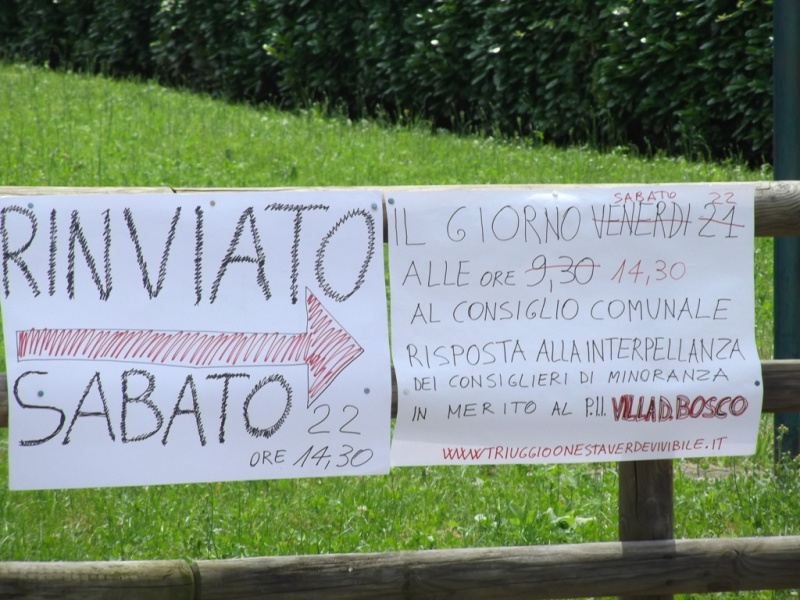 RINVIATO
SABATO 22
ORE 14,30
SABATO 22
IL GIORNO VENERDI 21
ALLE ORE 9,30 14,30
AL CONSIGLIO COMUNALE
RISPOSTA ALLA INTERPELLANZA
DEI CONSIGLIERI DI MINORANZA
IN MERITO AL P.I.I. VILLA D. BOSCO
WWW.TRIUGGIOONESTAVERDEVIVIBILE.IT